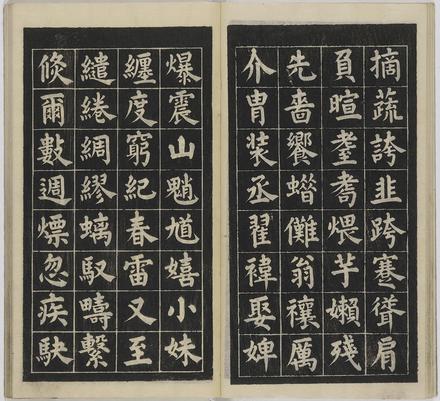 摘蔬誇韭跨蹇聳肩
負暄耋耆煨芋嬾殘
先嗇饗蜡儺翁禳厲
介冑裝丞翟褘娶婢
爆震山魈馗嬉小妹
纏度窮紀春雷又至
繾綣綢繆螭馭疇繫
倏爾數週熛忽疾駃